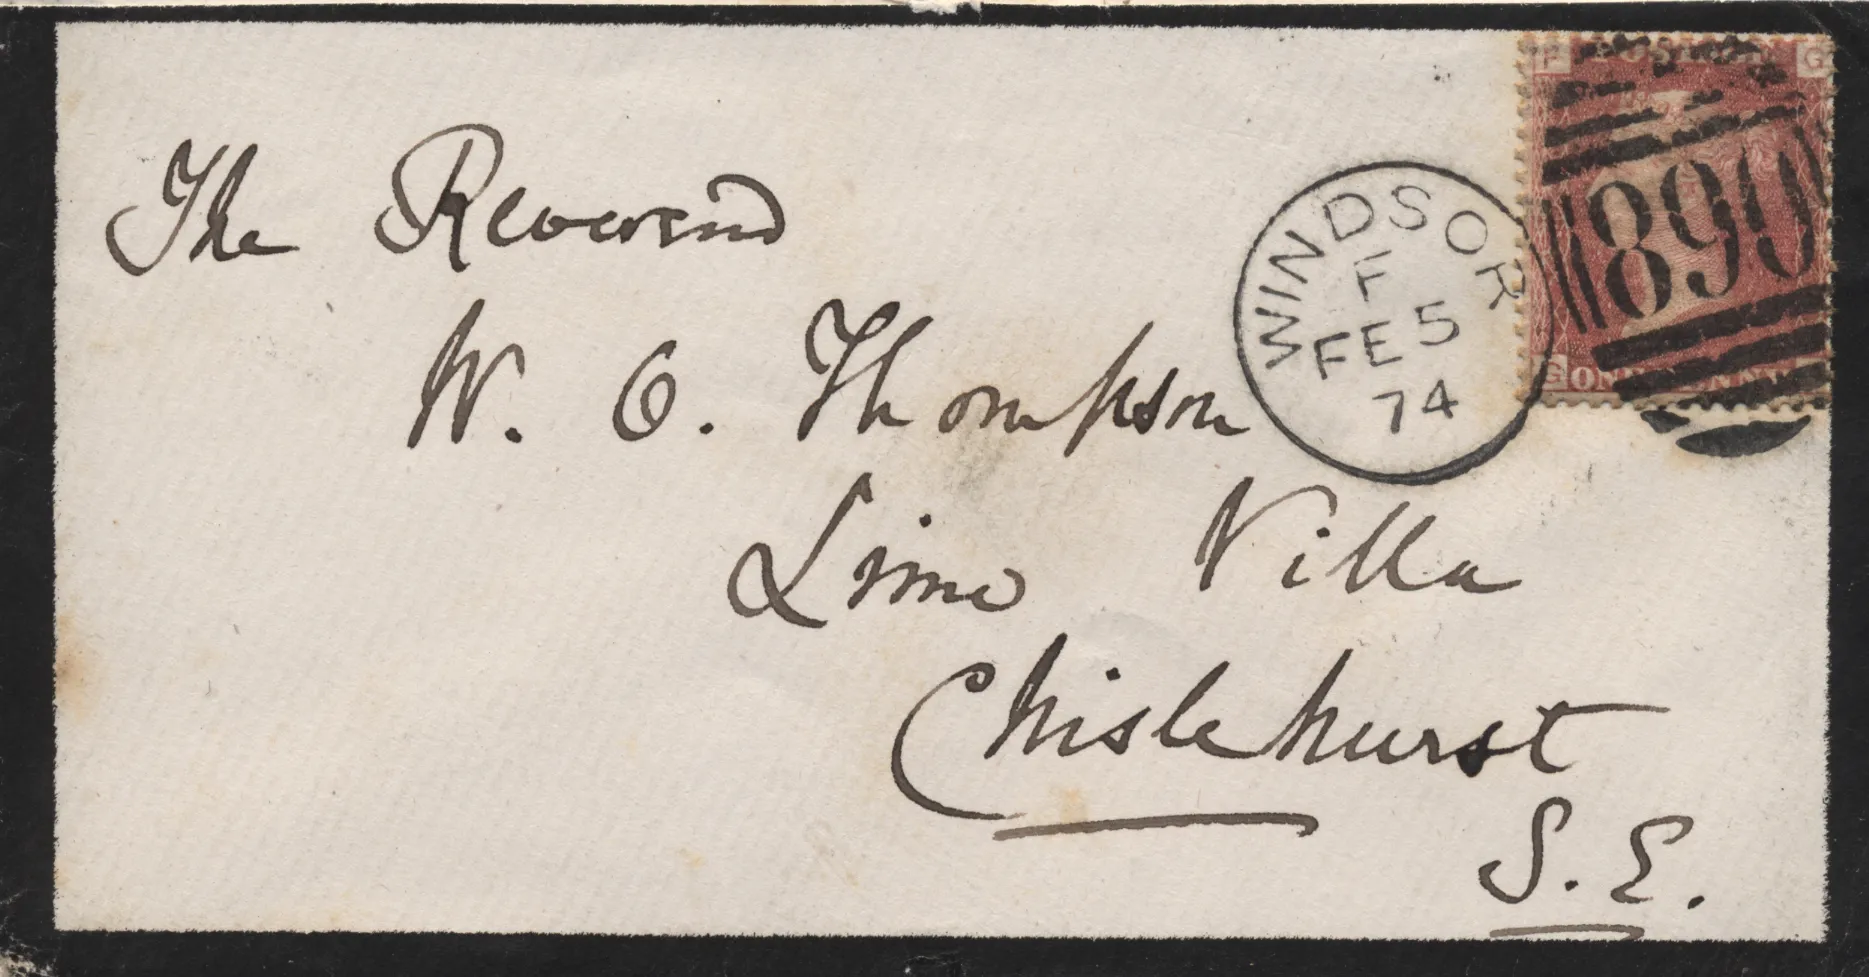 The Reverend
W. O. Thompson
Lime Villa
Chislehurst
S.E.
WINDSOR
F
FE 5
74
890
F G
G
ONE PENNY